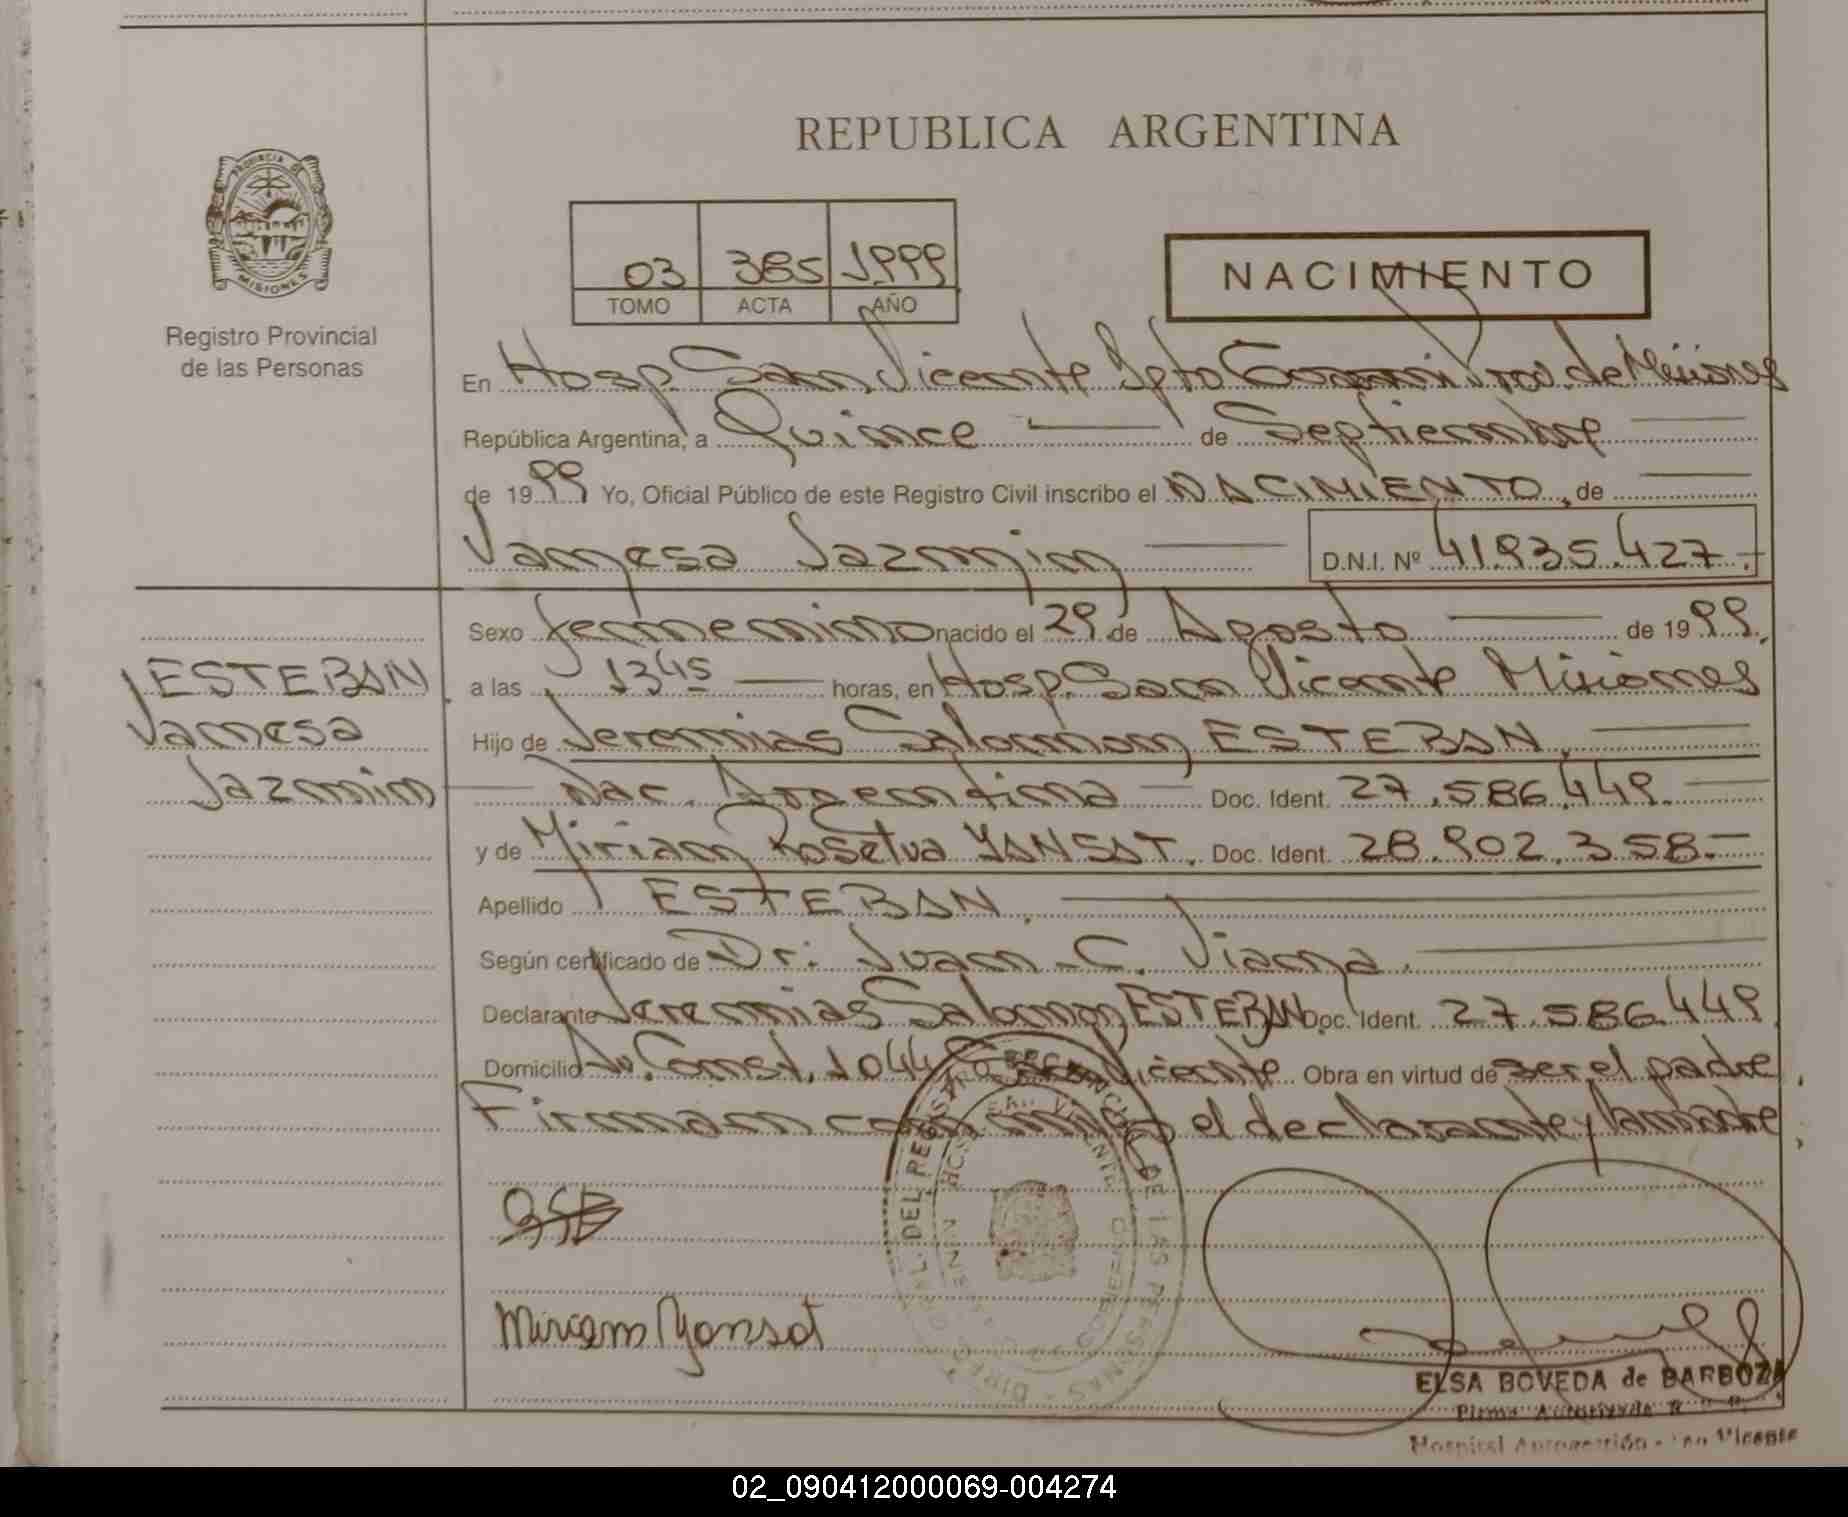 REPUBLICA ARGENTINA
PROVINCIA DE
MISIONES
Registro Provincial
de las Personas
03 385 1999
TOMO ACTA AÑO
NACIMIENTO
En Hosp. San Vicente Dpto Guaraní Prov. de Misiones
República Argentina, a Quince de Septiembre
de 1999 Yo, Oficial Público de este Registro Civil inscribo el NACIMIENTO, de
Vanesa Jazmin D.N.I. Nº 41.935.427.-
Sexo femenino nacido el 29 de Agosto de 1999.
ESTEBAN
Vanesa
Jazmin
a las 1345 horas, en Hosp. San Vicente Misiones
Hijo de Jeremias Salomon ESTEBAN.
Nac. Argentina Doc. Ident. 27.586.449.
y de Miriam Roselva YANSAT. Doc. Ident. 28.902.358.-
Apellido ESTEBAN.
Según certificado de Dr: Juan C. Viana.
Declarante Jeremias Salomon ESTEBAN Doc. Ident. 27.586.449
Domicilio Av. Const. 1044 San Vicente Obra en virtud de ser el padre,
Firman conmigo el declarante y la madre;
Miriam Yansat
ELSA BOVEDA de BARBOZA
Firma Autorizada
Hospital Autogestión - San Vicente
02_090412000069-004274